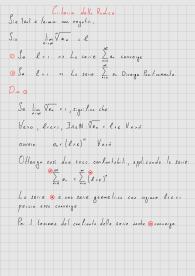 Criterio della Radice
Sia Σ a termini non negativi.
Sia lim ⁿ√aₙ = l
n→∞
① Se l<1 => La serie Σ aₙ converge
② Se l>1 => La serie Σ aₙ Diverge Positivamente.
Dim ①
Se lim ⁿ√aₙ <1, significa che:
∀ε>0, l+ε<1, ∃n̄∈ℕ: ⁿ√aₙ < l+ε ∀n≥n̄
ovvero aₙ < (l+ε)ⁿ ∀n≥n̄
Ottengo così due cose confrontabili, applicando la serie:
Σ aₙ < Σ (l+ε)ⁿ
La serie è una serie geometrica con ragione l+ε<1
perciò essa converge
Per il teorema del confronto della serie anche converge.